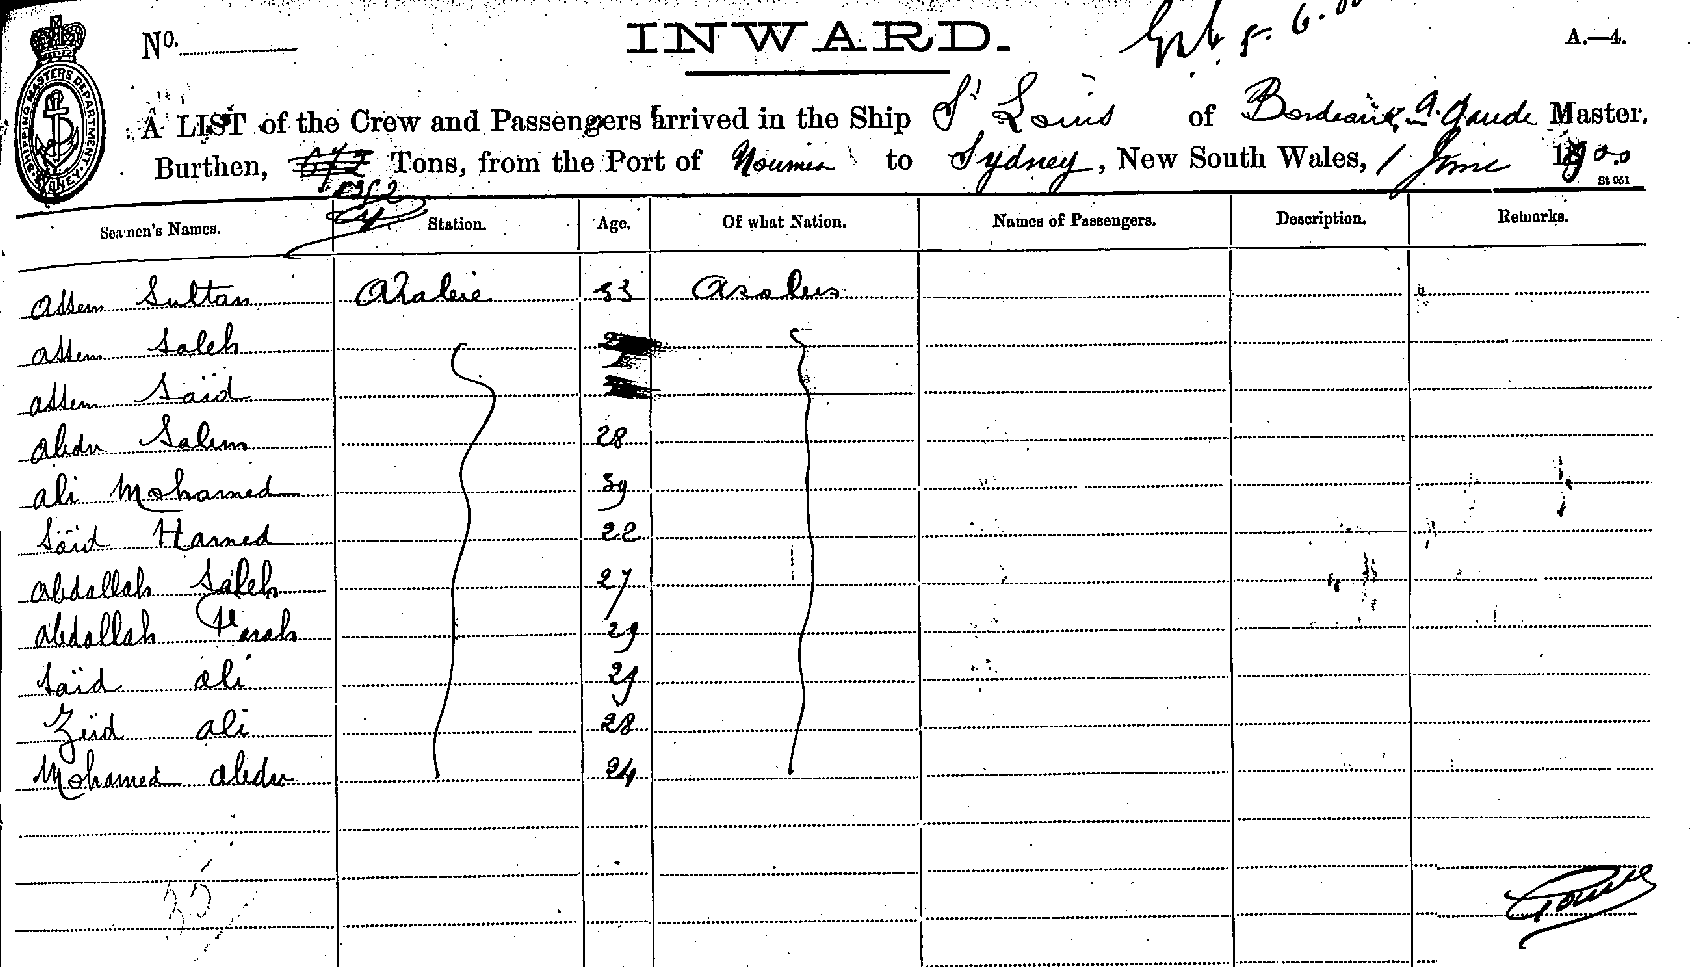 No. INWARD. 5.6.00 A.—4.
SHIPPING MASTERS DEPARTMENT SYDNEY
A LIST of the Crew and Passengers arrived in the Ship St Louis of Bordeaux, A. Gaude Master,
Burthen, Tons, from the Port of Noumea to Sydney, New South Wales, 1 June 1900
1382
St 051
Seamen's Names. Station. Age. Of what Nation. Names of Passengers. Description. Remarks.
Assem Sultan Arabie 33 Arabes
Assem Saleh
Assem Saïd
Abdu Salem 28
Ali Mohamed 39
Saïd Hamed 22
Abdallah Saleh 27
Abdallah Farah 29
Saïd Ali 29
Zeïd Ali 28
Mohamed Abdu 24
35